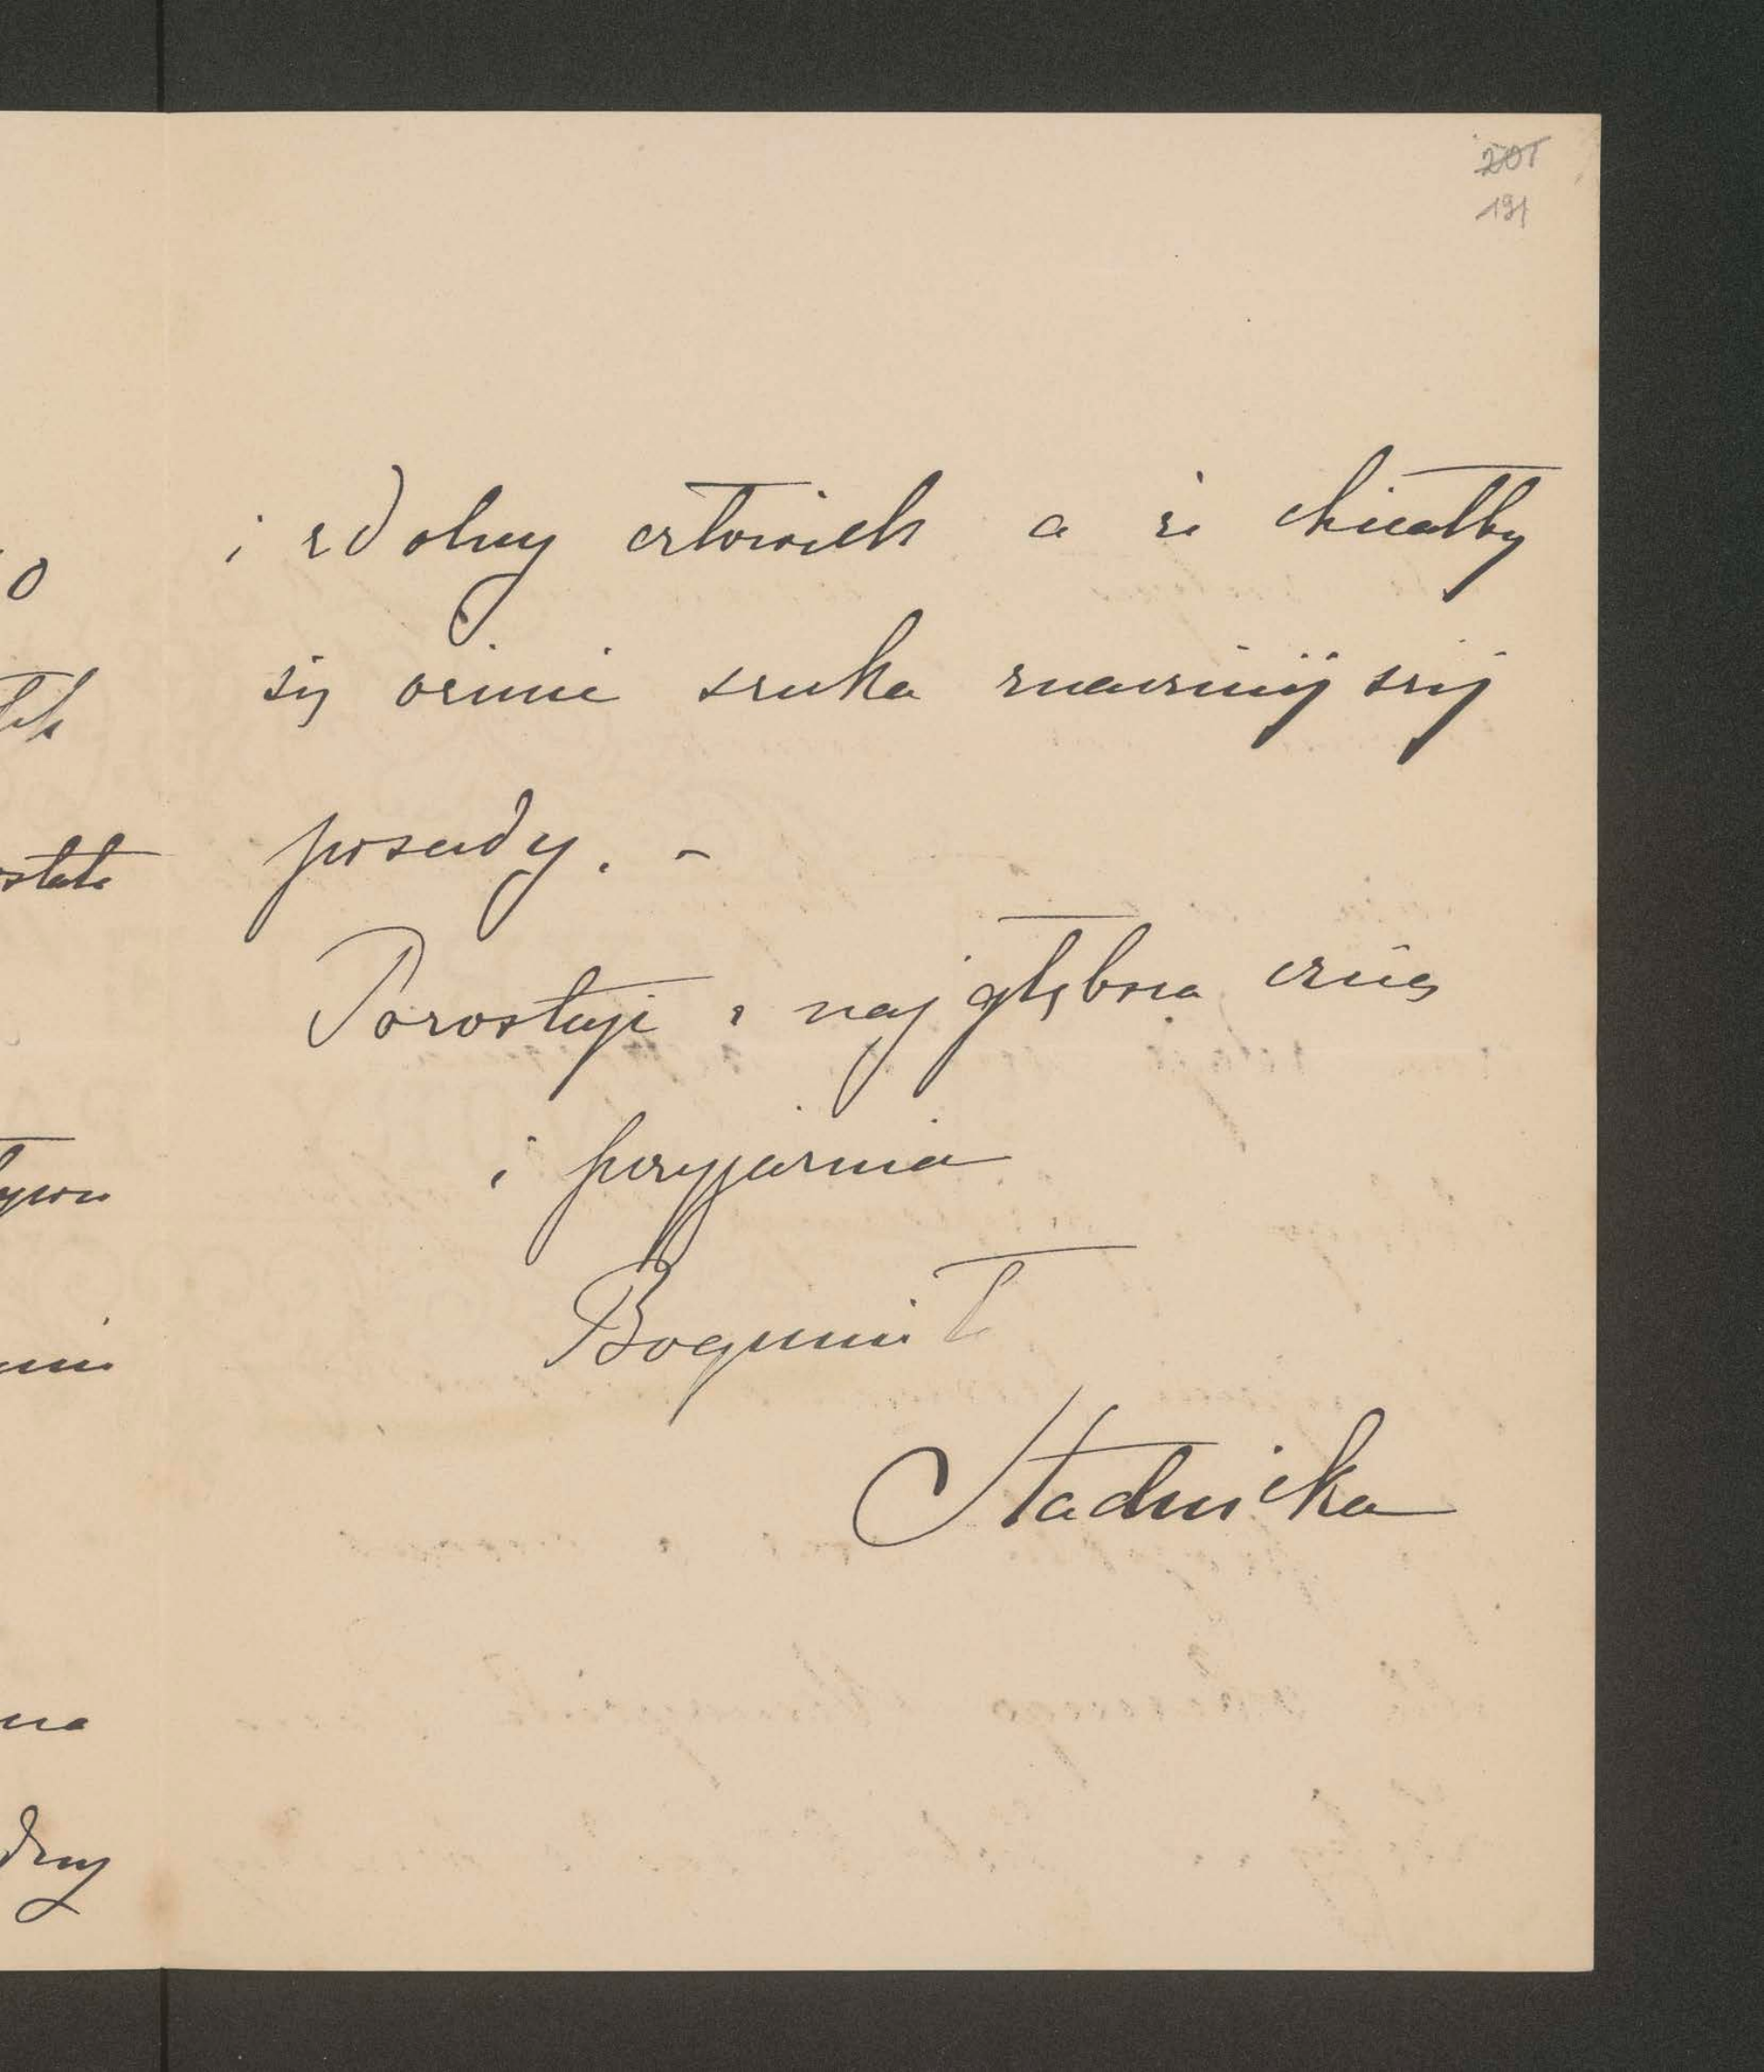 201
191
i zdolny człowiek a że chciałby
się ożenić szuka znaczniejszej
posady. -
Pozostaję z najgłębszą czcią
i przyjaźnią
Bogumił
Stadnicka